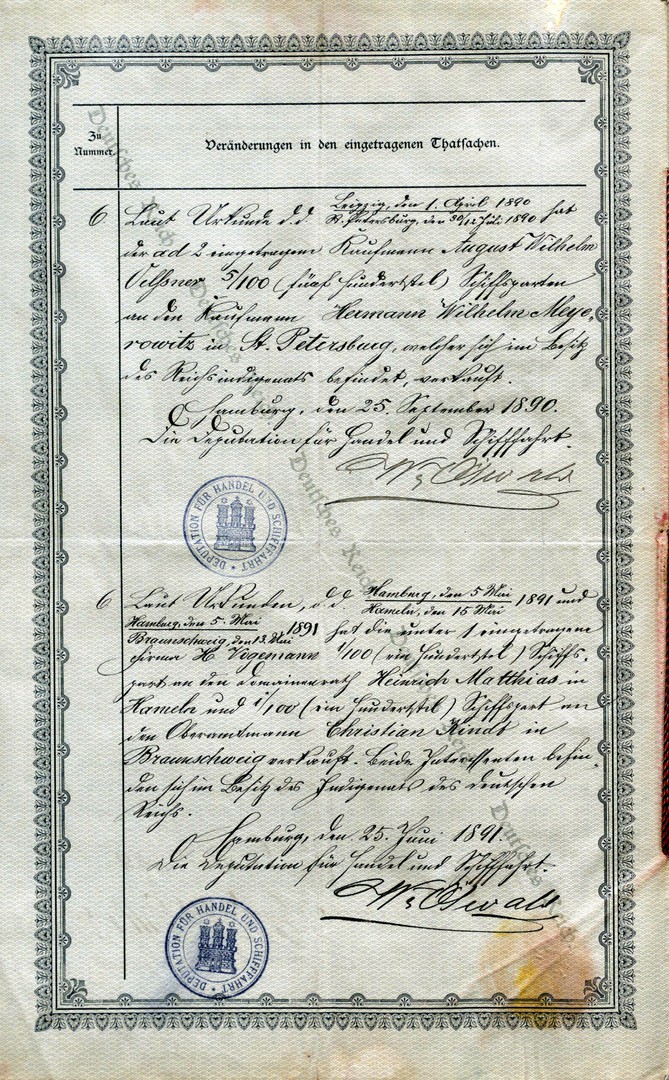 Zu Nummer.
Veränderungen in den eingetragenen Thatsachen.
6 Laut Urkunde d.d. Leipzig, den 1. April 1890
St. Petersburg, den 30/12 Juli 1890 hat
der ad 2 eingetragene Kaufmann August Wilhelm
Oelssner 5/100 (fünf hundertstel) Schiffsparten
an den Kaufmann Hermann Wilhelm Meye-
rowitz in St. Petersburg, welcher sich im Besitz
des Reichsindigenats befindet, verkauft.
Hamburg, den 25. September 1890.
Die Deputation für Handel und Schifffahrt.
DEPUTATION FÜR HANDEL UND SCHIFFAHRT
6 Laut Urkunden, d.d. Hamburg, den 5 Mai
Hameln, den 15 Mai 1891 und
Hamburg, den 5. Mai
Braunschweig, den 12. Mai 1891 hat die unter 1 eingetragene
Firma H. Vogemann 1/100 (ein hundertstel) Schiffs-
part an den Domainenrath Heinrich Matthias in
Hameln und 1/100 (ein hundertstel) Schiffspart an
den Oberamtmann Christian Kindt in
Braunschweig verkauft. Beide Interessenten befin-
den sich im Besitz des Indigenats des deutschen
Reichs.
Hamburg, den 25. Juni 1891.
Die Deputation für Handel und Schifffahrt.
DEPUTATION FÜR HANDEL UND SCHIFFAHRT
Deutsches Reich
Deutsches Reich
Deutsches Reich
Deutsches Reich